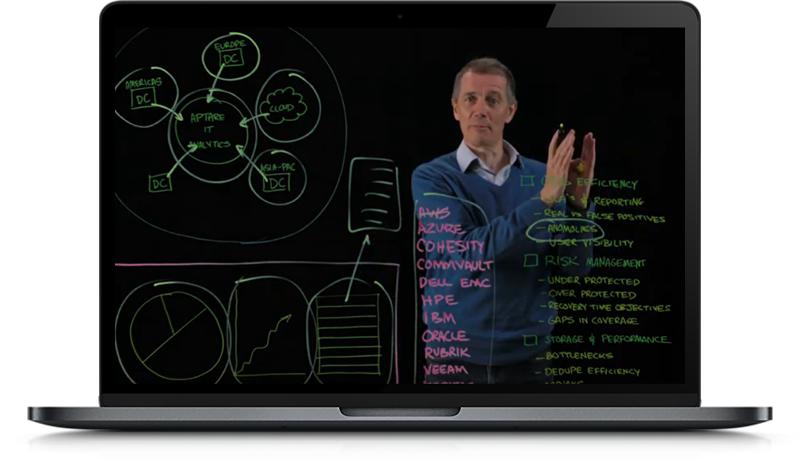 EUROPE
DC
AMERICAS
DC
CLOUD
APTARE
IT
ANALYTICS
DC
ASIA-PAC
DC
AWS
AZURE
COHESITY
COMMVAULT
DELL EMC
HPE
IBM
ORACLE
RUBRIK
VEEAM
EFFICIENCY
& REPORTING
- REAL VS FALSE POSITIVES
- ANOMOLIES
- USER VISIBILITY
RISK MANAGEMENT
- UNDER PROTECTED
- OVER PROTECTED
- RECOVERY TIME OBJECTIVES
- GAPS IN COVERAGE
STORAGE & PERFORMANCE
- BOTTLENECKS
- DEDUPE EFFICIENCY